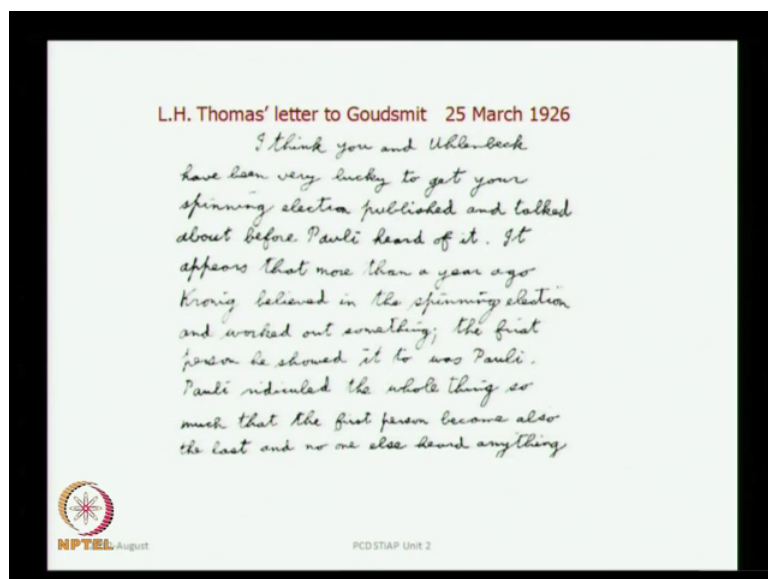 L.H. Thomas' letter to Goudsmit 25 March 1926
I think you and Uhlenbeck
have been very lucky to get your
spinning electron published and talked
about before Pauli heard of it. It
appears that more than a year ago
Kronig believed in the spinning electron
and worked out something; the first
person he showed it to was Pauli.
Pauli ridiculed the whole thing so
much that the first person became also
the last and no one else heard anything
NPTEL -August PCDSTiAP Unit 2